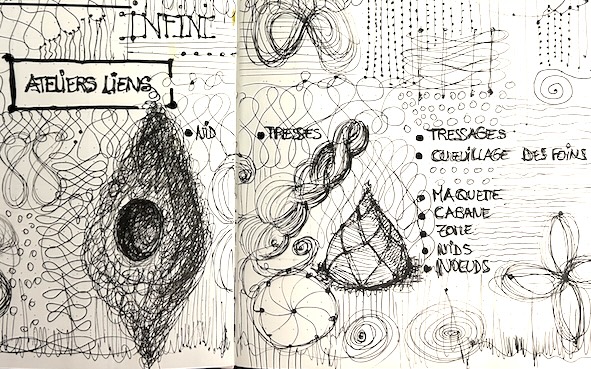 INFINI
ATELIERS LIENS
NID
TRESSES
TRESSAGES
DES FOINS
MAQUETTE
CABANE
ZOME
NIDS
NOEUDS